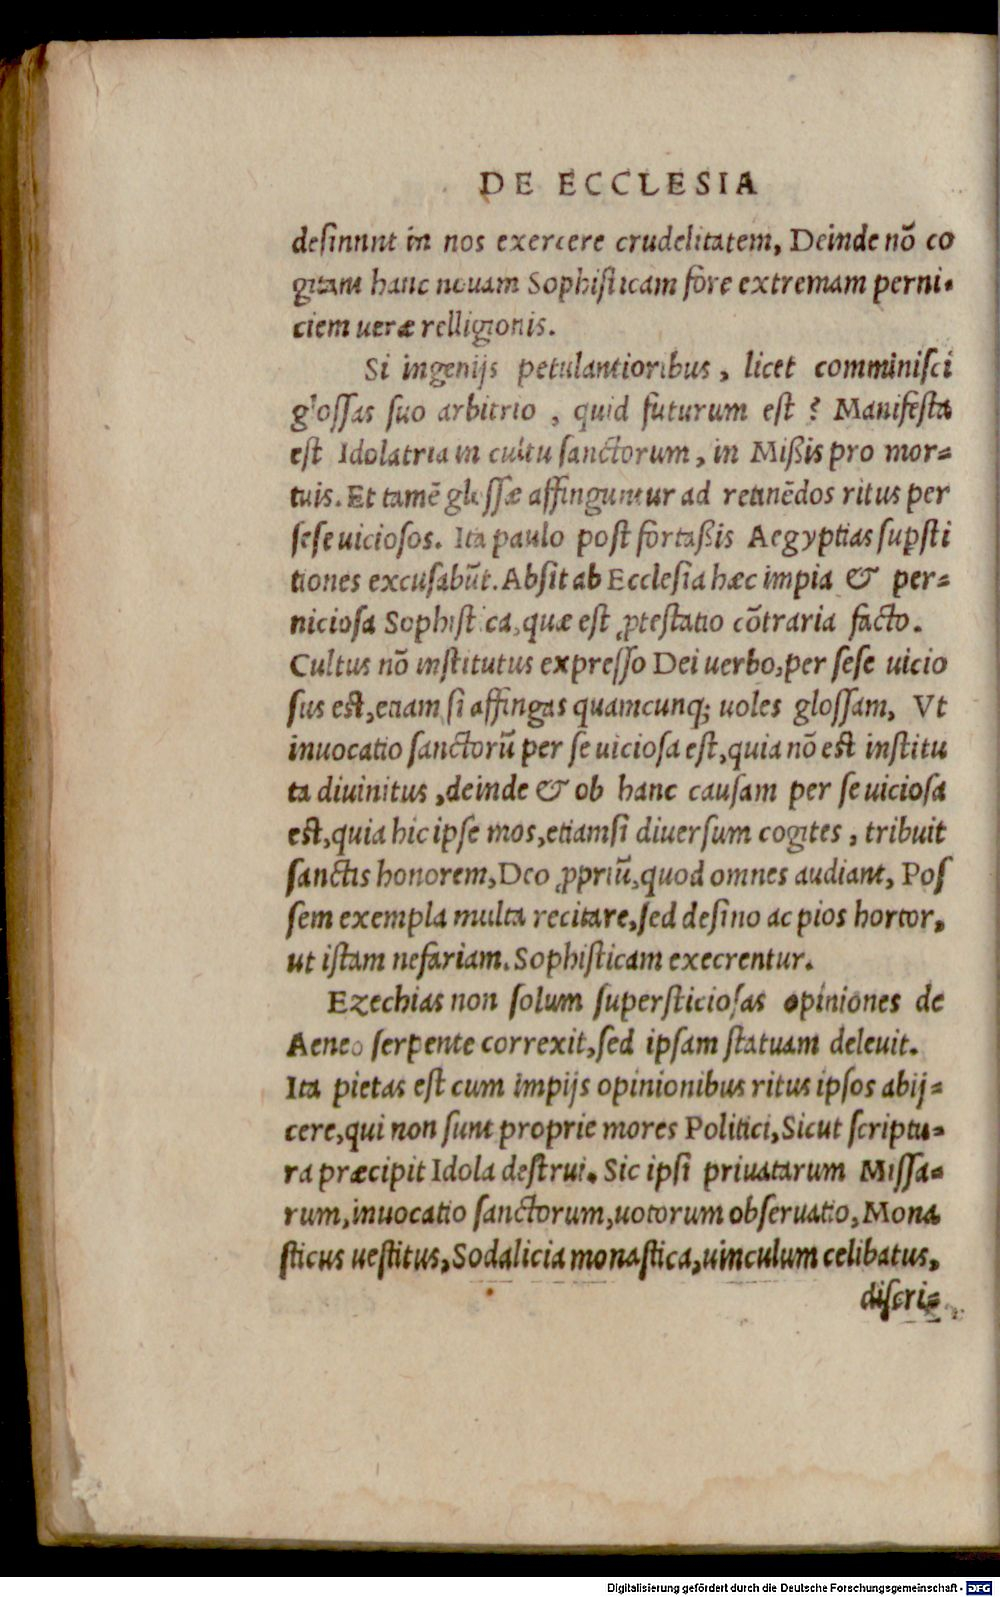 DE ECCLESIA
desinnnt in nos exercere crudelitatem, Deinde nõ co
gitant hanc nouam Sophisticam fore extremam perni-
ciem ueræ relligionis.
Si ingenijs petulantioribus, licet comminisci
glossas suo arbitrio, quid futurum est? Manifesta
est Idolatria in cultu sanctorum, in Mißis pro mor-
tuis. Et tamẽ glossæ affinguntur ad retinẽdos ritus per
sese uiciosos. Ita paulo post fortaßis Aegyptias sup̱sti
tiones excusabũt. Absit ab Ecclesia hæc impia & per-
niciosa Sophistica, quæ est ꝓtestatio cõtraria facto.
Cultus nõ institutus expresso Dei uerbo, per sese uicio
sus est, etiam si affingas quamcunq; uoles glossam, Vt
inuocatio sanctorũ per se uiciosa est, quia nõ est institu
ta diuinitus, deinde & ob hanc causam per se uiciosa
est, quia hic ipse mos, etiamsi diuersum cogites, tribuit
sanctis honorem, Deo ꝓpriũ, quod omnes audiant, Pos
sem exempla multa recitare, sed desino ac pios hortor,
ut istam nefariam. Sophisticam execrentur.
Ezechias non solum supersticiosas opiniones de
Aeneo serpente correxit, sed ipsam statuam deleuit.
Ita pietas est cum impijs opinionibus ritus ipsos abij-
cere, qui non sunt proprie mores Politici, Sicut scriptu-
ra præcipit Idola destrui. Sic ipsi priuatarum Missa-
rum, inuocatio sanctorum, uotorum obseruatio, Mona
sticus uestitus, Sodalicia monastica, uinculum celibatus,
discri-
Digitalisierung gefördert durch die Deutsche Forschungsgemeinschaft - DFG